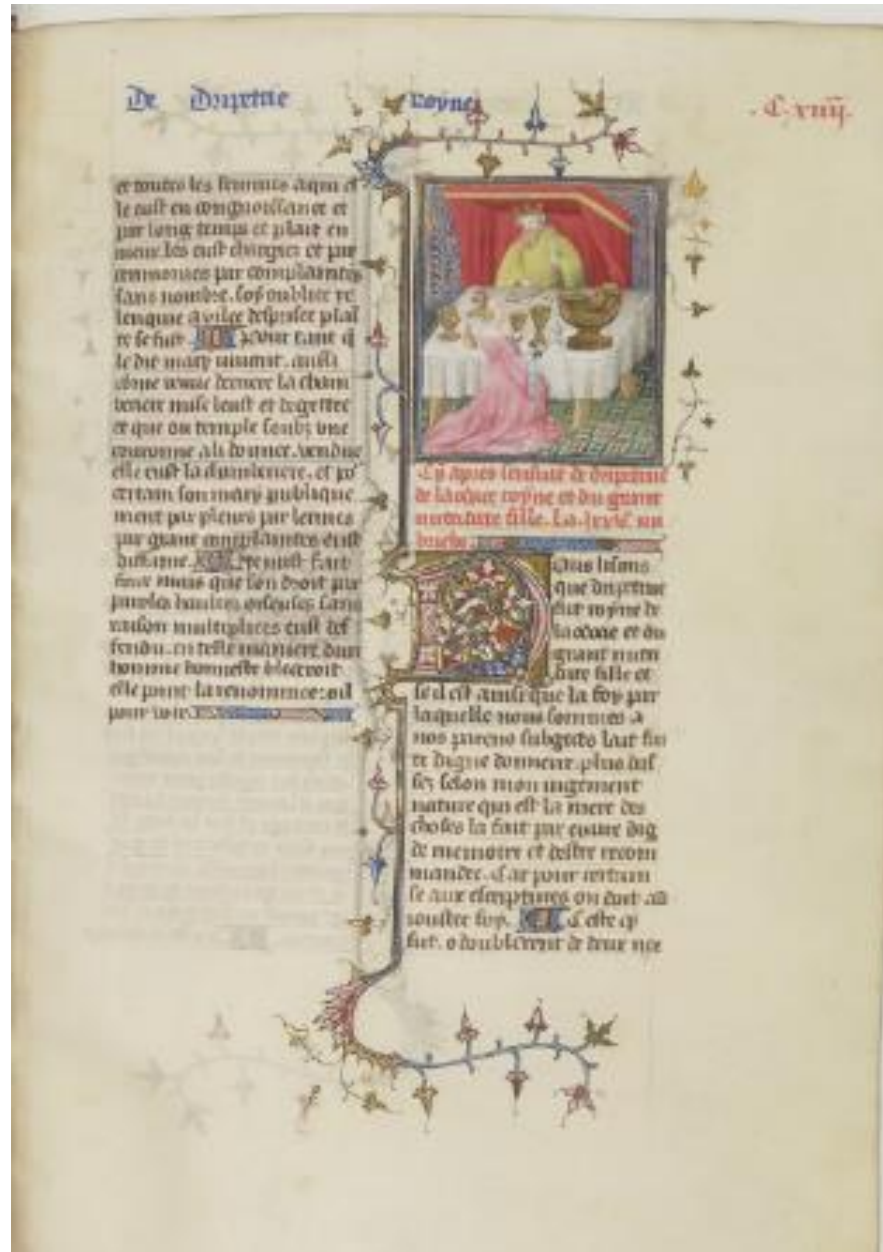 De Dripetine royne
.C. xiiij.
et toutes les femmes a qui el
le eust eu congnoissance et
par long temps et plait en
meu les eust chargies et par
cerimonies par complaintes
sans nombre. soy oubliee re
lenquie a vilee desprisee plai
re se fust. Pour tant q
le dit mary vivent. aussi
come venue derriere la cham
beriere mise leust et degettee
et que ou temple soubz une
couronne a li donnee. vendue
elle eust la chamberiere. et po
certain son mary publique
ment par pleurs par lermes
par grant complaintes eust
diffame. Et neust fait
ceux maus que son droit par
paroles haultes oiseuses sans
raison multipliees eust def
fendu. en telle maniere dun
homme honneste bleceroit
elle point la renommee: oil
pour voir.
Cy apres sensuit de dripetine
de laodice royne et du grant
mitridate fille. La
rubriche
Nous lisons
que dripetine
fut royne de
laodice et du
grant mitri
date fille et
se il est ainsi que la foy par
laquelle nous sommes a
nos parens subgects lait fai
te digne
sez selon mon iugement
nature qui est la mere des
choses la fait par euvre dig
de memoire et destre recom
mandee. Car pour certain
se aux escriptures on doit ad
iouster foy. Ceste cy
fut. o doublement de deux